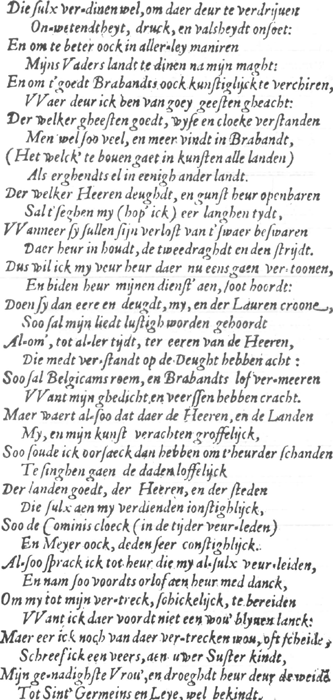 Die sulx ver-dinen wel, om daer deur te verdrijuen
On-wetendtheyt, druck, en valsheydt onsoet:
En om te beter oock in aller-ley maniren
Mijns Vaders landt te dinen na mijn maght:
En om t'goedt Brabandts oock kunstiglijck te verchiren,
VVaer deur ick ben van goey geesten gheacht:
Der welker gheesten goedt, wyse en cloeke verstanden
Men wel soo veel, en meer vindt in Brabandt,
(Het welck' te bouen gaet in kunsten alle landen)
Als erghendts el in eenigh ander landt.
Der welker Heeren deughdt, en gunst heur openbaren
Sal t'seghen my (hop' ick) eer langhen tydt,
VVanneer sy sullen sijn verlost van t'swaer beswaren
Daer heur in houdt, de tweedraghdt en den strijdt.
Dus wil ick my veur heur daer nu eens gaen ver-toonen,
En biden heur mijnen dienst' aen, soot hoordt:
Doen sy dan eere en deugdt, my, en der Lauren croone,
Soo sal mijn liedt lustigh worden gehoordt
Al-om', tot al-ler tijdt, ter eeren van de Heeren,
Die medt ver-standt op de Deught hebben acht:
Soo sal Belgicams roem, en Brabandts lof ver-meeren
VVant mijn ghedicht, en veerssen hebben cracht.
Maer waert al-soo dat daer de Heeren, en de Landen
My, en mijn kunst verachten groffelijck,
Soo soude ick oorsaeck dan hebben om t'heurder schanden
Te singhen gaen de daden loffelijck
Der landen goedt, der Heeren, en der steden
Die sulx aen my verdienden ionstighlijck,
Soo de Cominis cloeck (in de tijder veur-leden)
En Meyer oock, deden seer constighlijck.
Al-soo sprack ick tot heur die my al-sulx veur-leiden,
En nam soo voordts orlof aen heur med danck,
Om my tot mijn ver-treck, schickelijck, te bereiden
VVant ick daer voordt niet een wou' blyuen lanck:
Maer eer ick noch van daer ver-trecken wou, oft scheide,
Schreef ick een veers, aen uwer Suster kindt,
Mijn ge-nadighste Vrou', en droeghdt heur deur de weide
Tot Sint' Germeins en Leye, wel bekindt.